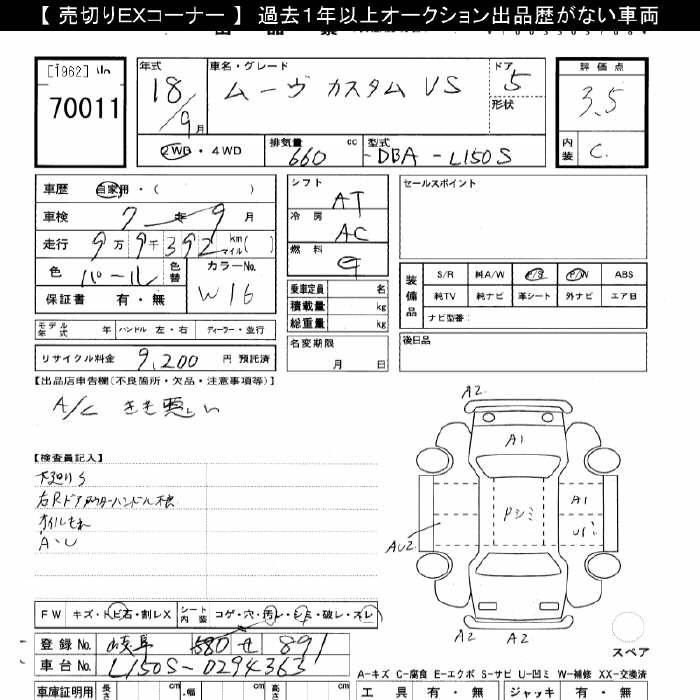 【 売切りEXコーナー 】 過去1年以上オークション出品歴がない車両
[1962]
70011
年式
18/9月
車名・グレード
ムーヴ カスタム VS
ドア
5
形状
評価点
3.5
内装
C
2WD・4WD
排気量 660 cc
型式 -DBA-L150S
車歴 自家用・( )
車検 7年9月
走行 9万9千392km マイル( )
色 パール 色替
カラーNo. W16
保証書 有・無
シフト AT
冷房 AC
燃料 G
乗車定員 名
積載量 kg
総重量 kg
名変期限 月 日
セールスポイント
装備品
S/R 純A/W P/S P/W ABS
純TV 純ナビ 革シート 外ナビ エアB
ナビ型番:
後日品
モデル年式 年 ハンドル 左・右 ディーラー・並行
リサイクル料金 9,200 円 預託済
【出品店申告欄(不良箇所・欠品・注意事項等)】
A/C きき悪い
【検査員記入】
下廻りS
右Rドアアウターハンドル不良
オイルもれ
A・U
A2
A1
Pシミ
A1
AU2
A2
A2
スペア
FW キズ・トビ石・割レX シート内装 コゲ・穴・汚レ・シミ・破レ・スレ
登録No. 岐阜 580 せ 891
車台No. L150S-0294363
A-キズ C-腐食 E-エクボ S-サビ U-凹ミ W-補修 XX-交換済
車庫証明用 長さ cm 幅 cm 高さ cm
工具 有・無 ジャッキ 有・無